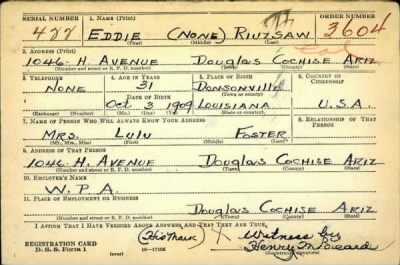 SERIAL NUMBER 1. NAME (Print) ORDER NUMBER
477 EDDIE (NONE) RIUZSAW 3604
(First) (Middle) (Last)
2. ADDRESS (Print)
1046-H. AVENUE DOUGLAS COCHISE ARIZ
(Number and street or R. F. D. number) (Town) (County) (State)
3. TELEPHONE 4. AGE IN YEARS 5. PLACE OF BIRTH 6. COUNTRY OF CITIZENSHIP
NONE 31 DONSONVILLE
DATE OF BIRTH (Town or county)
OCT 3 1909 LOUISIANA U.S.A.
(Mo.) (Day) (Yr.) (State or country)
7. NAME OF PERSON WHO WILL ALWAYS KNOW YOUR ADDRESS 8. RELATIONSHIP OF THAT PERSON
MRS. LULU FOSTER
(Mr., Mrs., Miss) (First) (Middle) (Last)
9. ADDRESS OF THAT PERSON
1046-H. AVENUE DOUGLAS COCHISE ARIZ
(Number and street or R. F. D. number) (Town) (County) (State)
10. EMPLOYER'S NAME
W.P.A.
11. PLACE OF EMPLOYMENT OR BUSINESS
DOUGLAS COCHISE ARIZ
(Number and street or R. F. D. number) (Town) (County) (State)
I AFFIRM THAT I HAVE VERIFIED ABOVE ANSWERS AND THAT THEY ARE TRUE.
(His Mark) X Witness by
REGISTRATION CARD
D. S. S. Form 1 (over) Henry
(Registrant's signature)